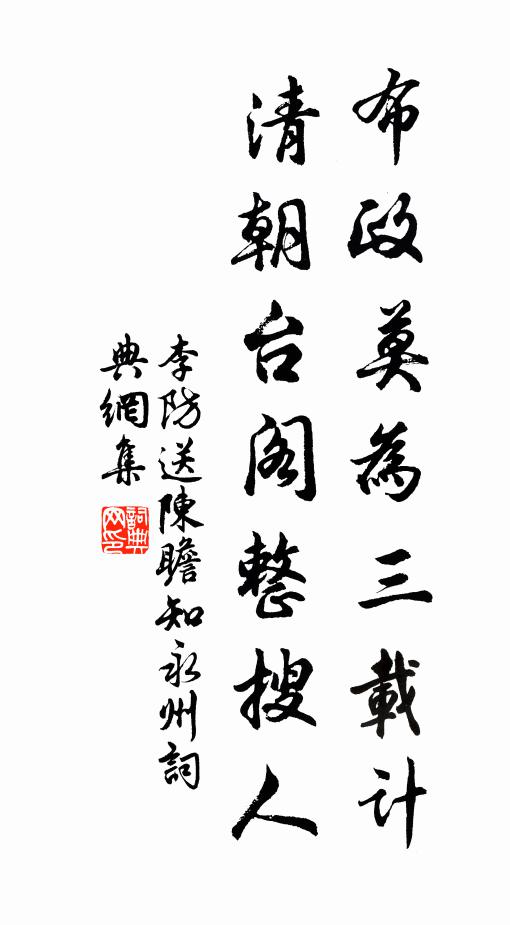 布政莫為三載計
清朝台阁整搜人
李防送陳瞻知永州詞
典網集
詞典網印